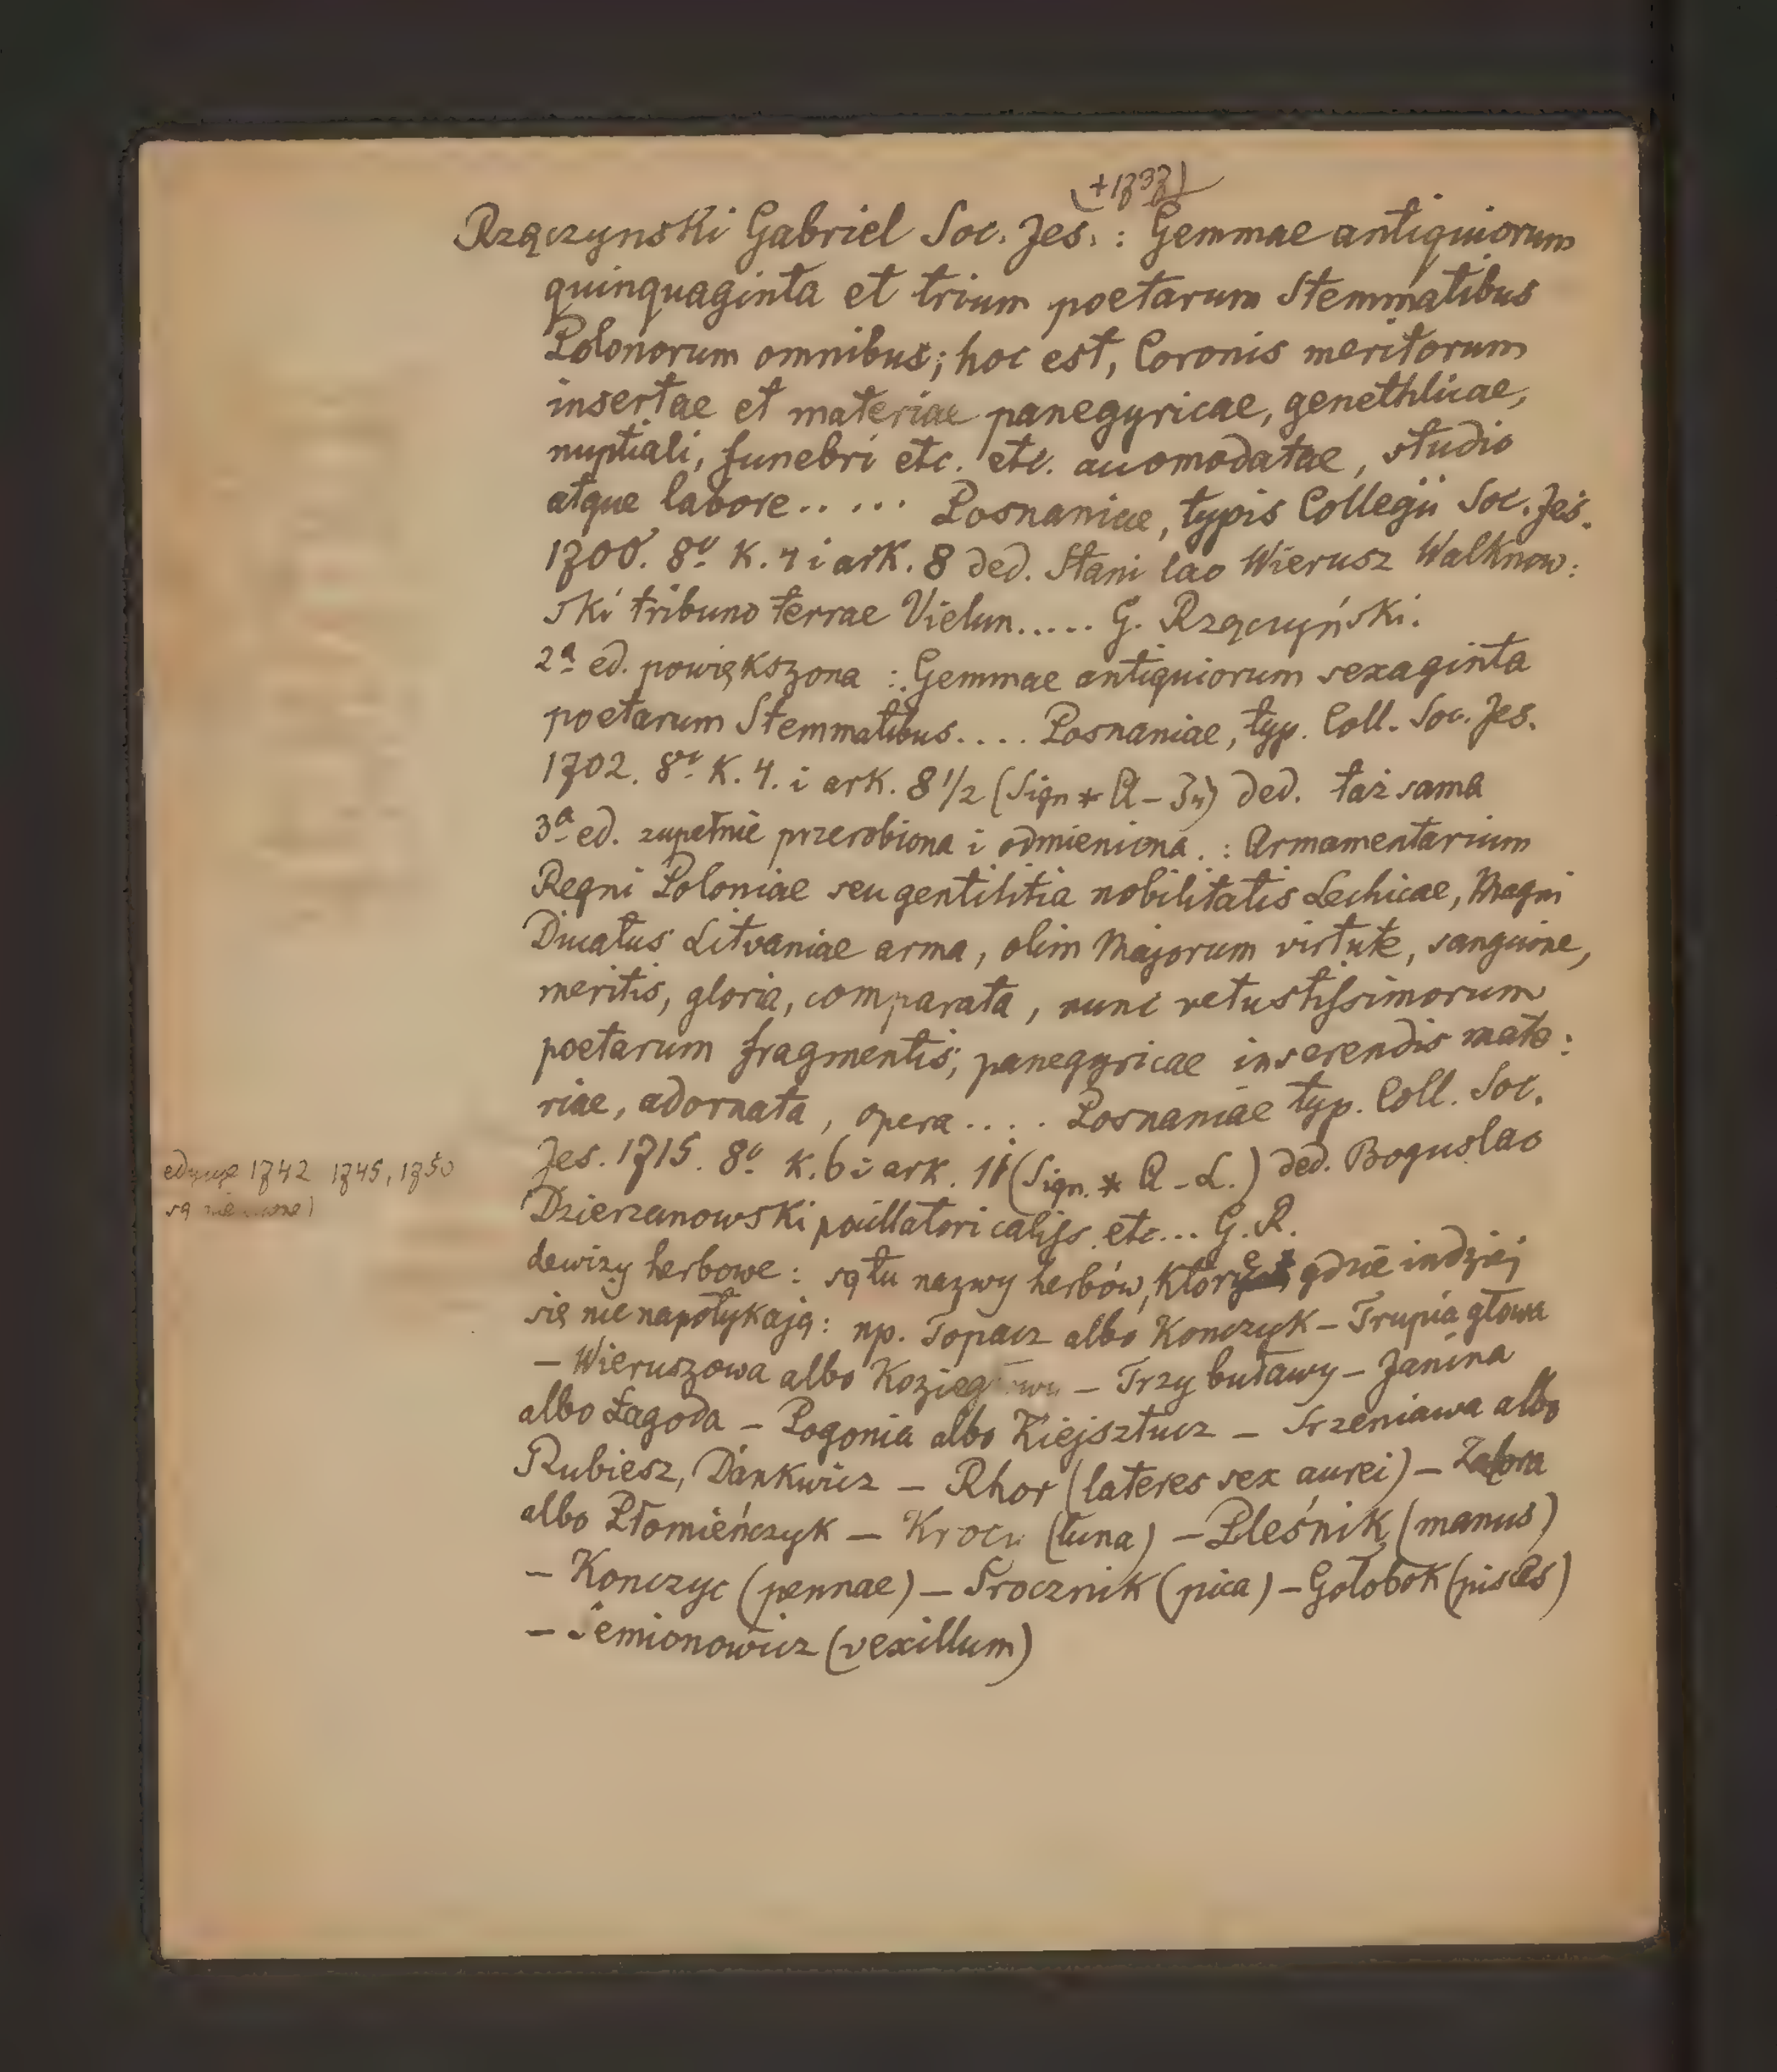 (+1737)
Rzączynski Gabriel Soc. Jes. : Gemmae antiquiorum
quinquaginta et trium poetarum Stemmatibus
Polonorum omnibus; hoc est, Coronis meritorum
insertae et materiae panegyricae, genethlicae,
nuptiali, funebri etc. etc. accomodatae, studio
atque labore..... Posnaniae, typis Collegii Soc. Jes.
1700. 8º K. 4 i ark. 8 ded. Stani lao Wierusz Walknow:
ski tribuno terrae Vielun..... G. Rzączyński.
2ª ed. powiększona : Gemmae antiquiorum sexaginta
poetarum Stemmatibus.... Posnaniae, typ. Coll. Soc. Jes.
1702. 8º K. 4. i ark. 8 1/2 (Sign * A – I4) ded. taż sama
3ª ed. zupełnie przerobiona i odmieniona. : Armamentarium
Regni Poloniae seu gentilitia nobilitatis Lechicae, Magni
Ducatus Litvaniae arma, olim Majorum virtute, sanguine,
meritis, gloria, comparata, nunc vetustissimorum
poetarum fragmentis, panegyricae inserendis mate:
riae, adornata, opera.... Posnaniae typ. Coll. Soc.
Jes. 1715. 8º K. 6 i ark. 11 (Sign. * A – L.) ded. Boguslao
edycye 1742 1745, 1750
są
Dzierzanowski pocillatori caliss. etc... G. R.
dewizy herbowe : są tu nazwy herbów, które gdzie indziej
się nie napotykają : np. Topacz albo Konczyk – Trupia głowa
– Wieruszowa albo – Trzy buławy – Janina
albo Łagoda – Pogonia albo Kiejsztucz – Srzeniawa albo
Rubiesz, Dankwicz – Rhor (lateres sex aurei) –
albo Płomieńczyk – (luna) – Pleśnik (manus)
– Konczyc (pennae) – Srocznik (pica) – Gołobok (pisces)
– Semionowicz (vexillum)